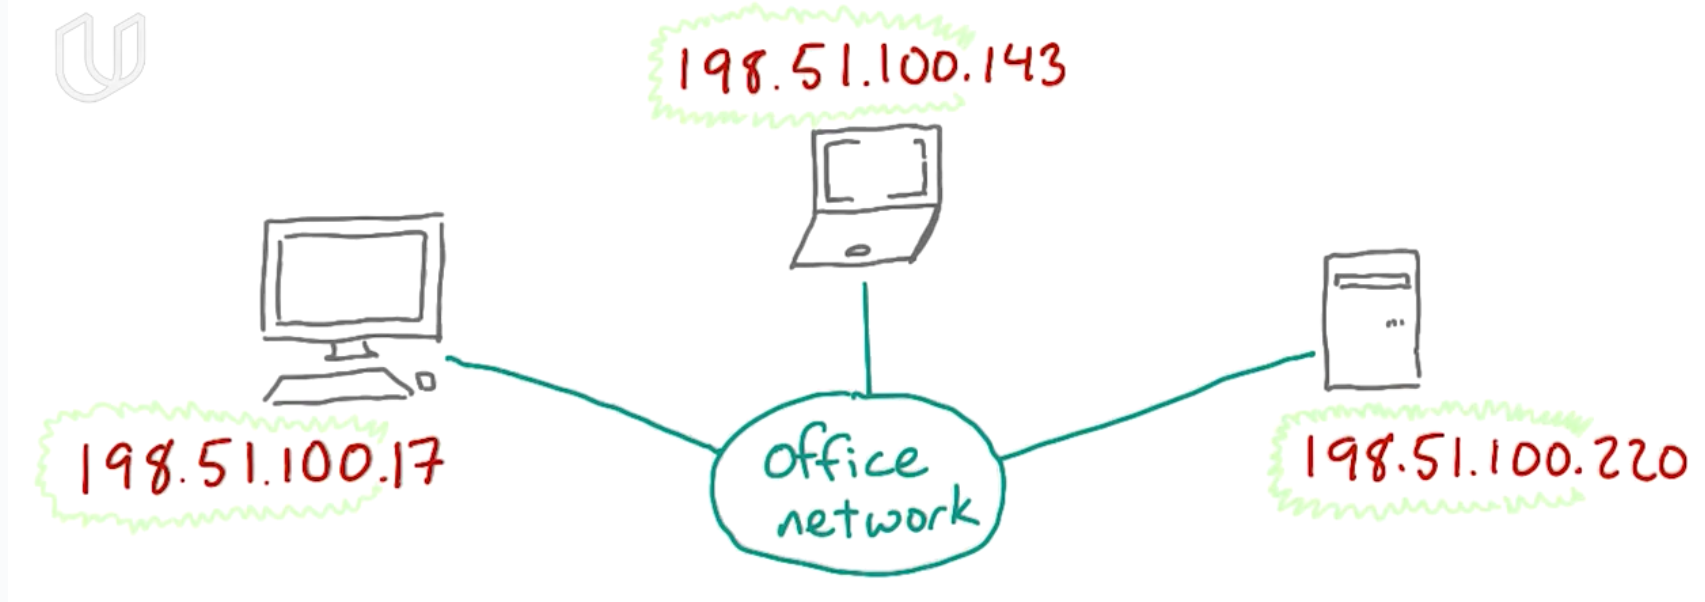 198.51.100.143
198.51.100.17
office
network
198.51.100.220